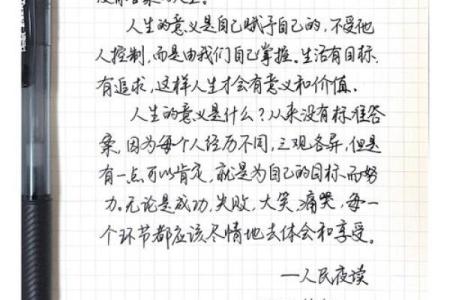 人生的意义是自己赋予自己的,不受他
人控制,而是由我们自己掌握.生活有目标.
有追求,这样人生才会有意义和价值.
人生的意义是什么?从来没有标准答
案,因为每个人经历不同,三观各异,但是
有一点可以肯定,就是为自己的目标而努
力.无论是成功,失败,大笑,痛哭,每一
个环节都应该尽情地去体会和享受。
—人民夜读